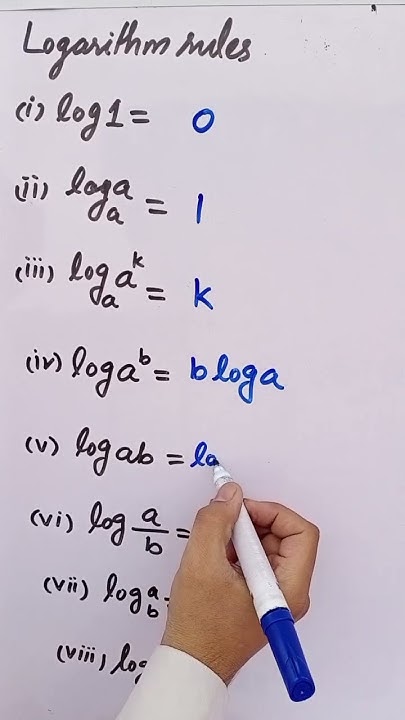 Logarithm rules
(i) log 1 = 0
(ii) logₐa = 1
(iii) logₐaᵏ = k
(iv) log aᵇ = b log a
(v) log ab = lo
(vi) log a/b =
(vii) log_b a
(viii) log